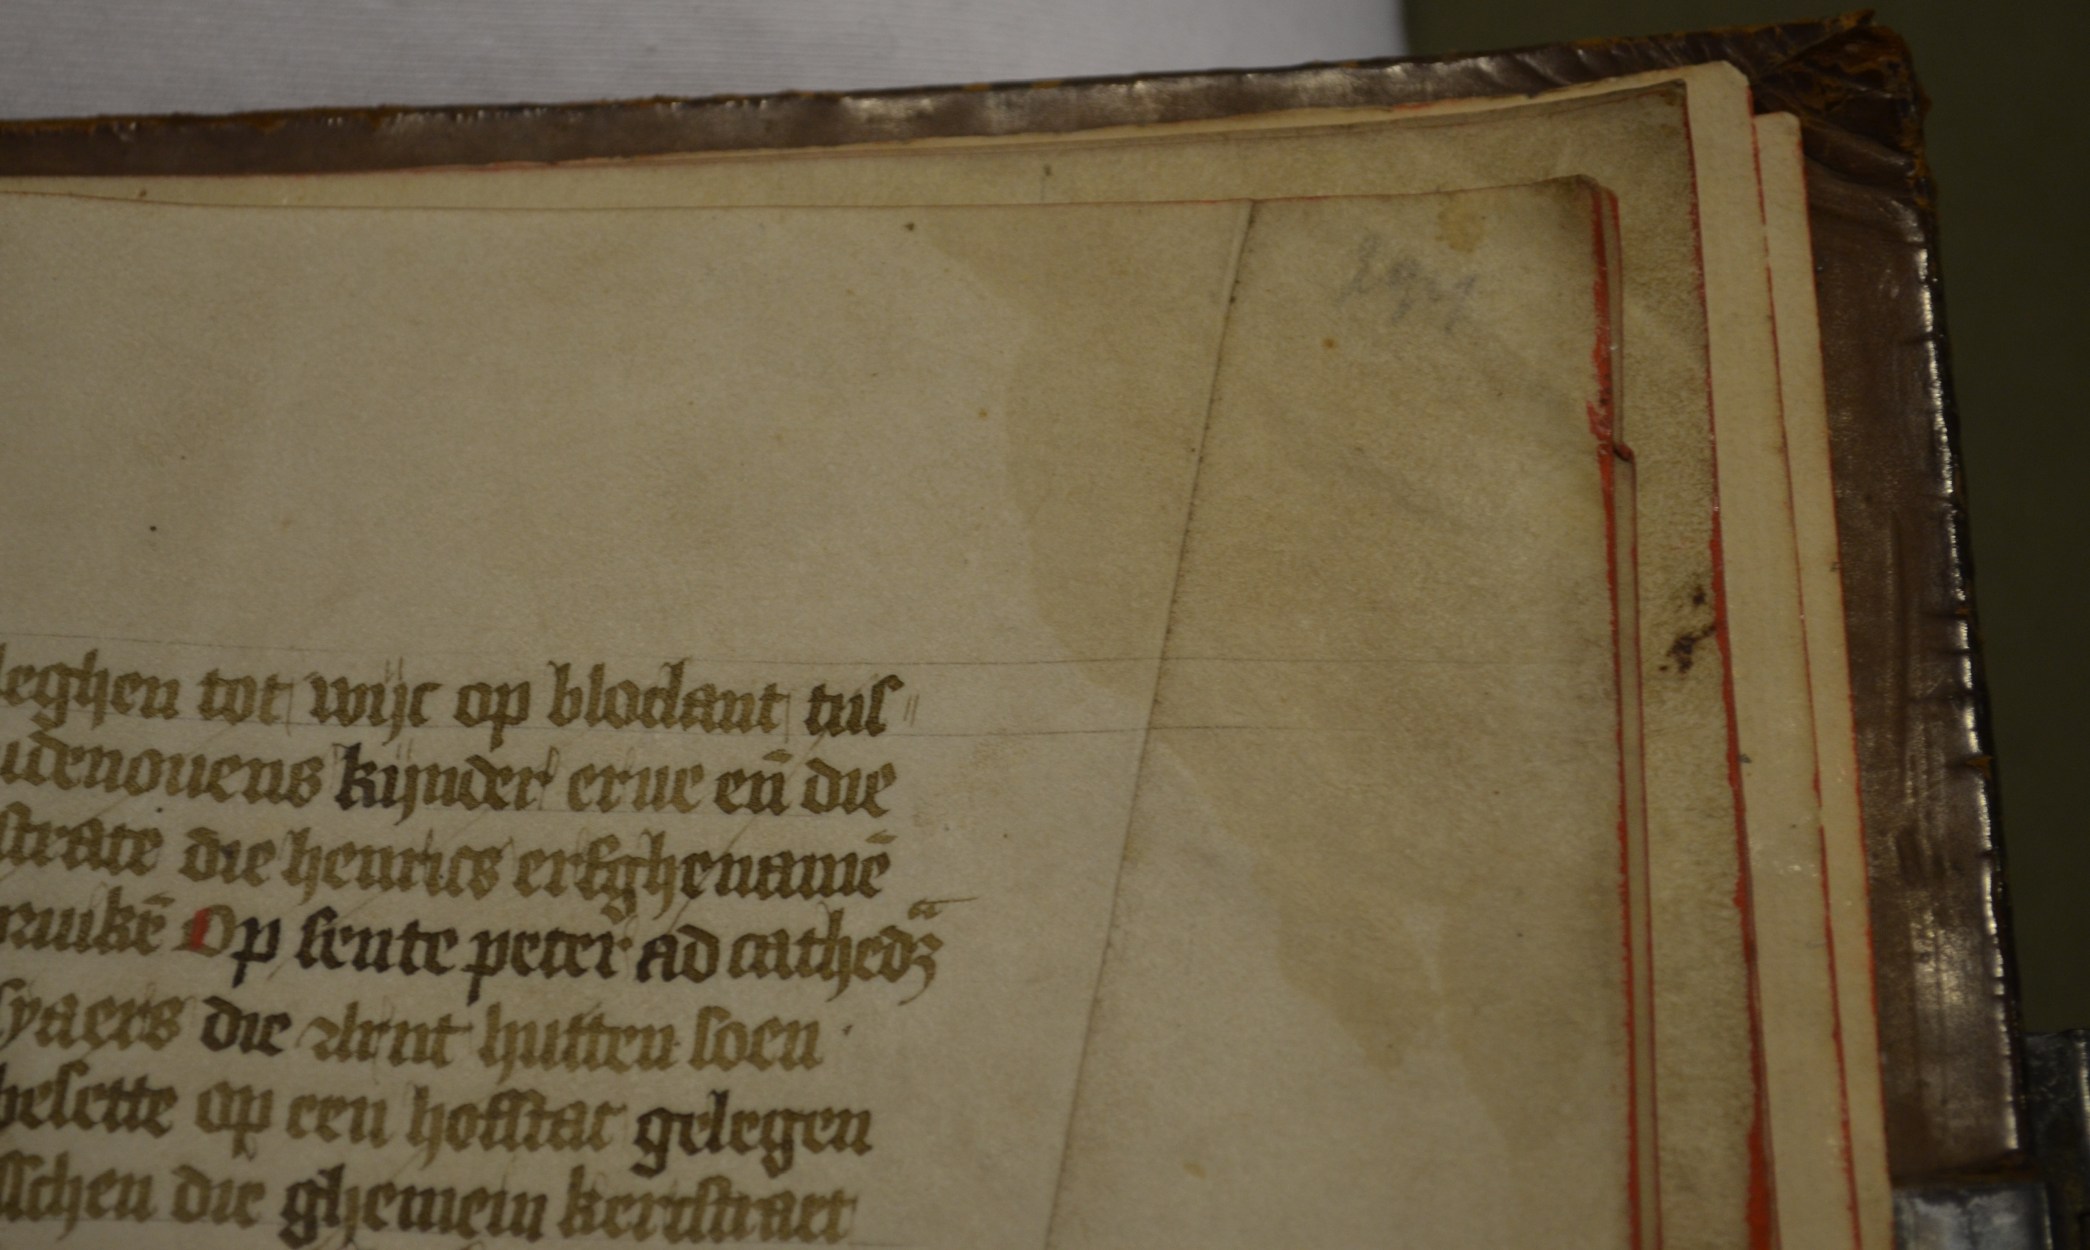 leghen tot wijc op blodant tus
udenouens kijnder erue en̄ die
strate die henrics erfghenamē
bruikē Op sente peter ad cathedꝝ
syaers die Arnt hutten soen
besette op een hofstat gelegen
sschen die ghemein kerfstraet